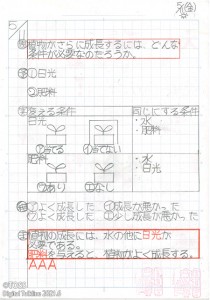 5/(金)
植物がさらに成長するには、どんな
条件が必要なのだろうか。
①日光
②肥料
変える条件
同じにする条件
日光
・水
・肥料
①当てる
②当てない
肥料
・水
・日光
①あり
②なし
①よく成長した ②成長が悪かった
①よく成長した ②少し成長が悪かった
植物の成長には、水の他に日光が
必要である。
肥料を与えると、植物がよく成長する。
AAA
©TOSS
Digital Talkline 2025.6